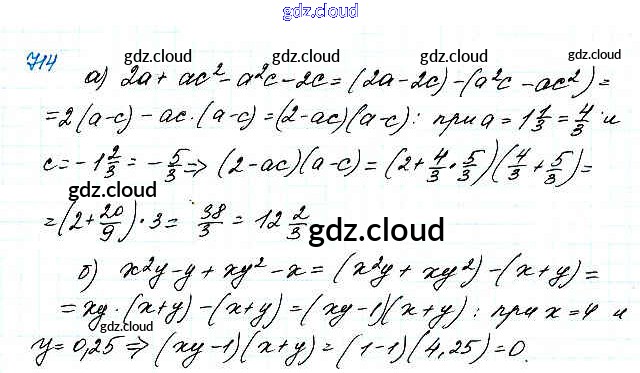 gdz.cloud
714
gdz.cloud gdz.cloud gdz.cloud
а) 2a + ac² - a²c - 2c = (2a - 2c) - (a²c - ac²) =
= 2(a-c) - ac·(a-c) = (2-ac)(a-c): при a = 1 1/3 = 4/3 и
c = -1 2/3 = -5/3 ⇒ (2-ac)(a-c) = (2 + 4/3 · 5/3)(4/3 + 5/3) =
gdz.cloud gdz.cloud
= (2 + 20/9) · 3 = 38/3 = 12 2/3
gdz.cloud
б) x²y - y + xy² - x = (x²y + xy²) - (x+y) =
= xy·(x+y) - (x+y) = (xy-1)(x+y): при x = 4 и
gdz.cloud gdz.cloud
y = 0,25 ⇒ (xy-1)(x+y) = (1-1)(4,25) = 0.